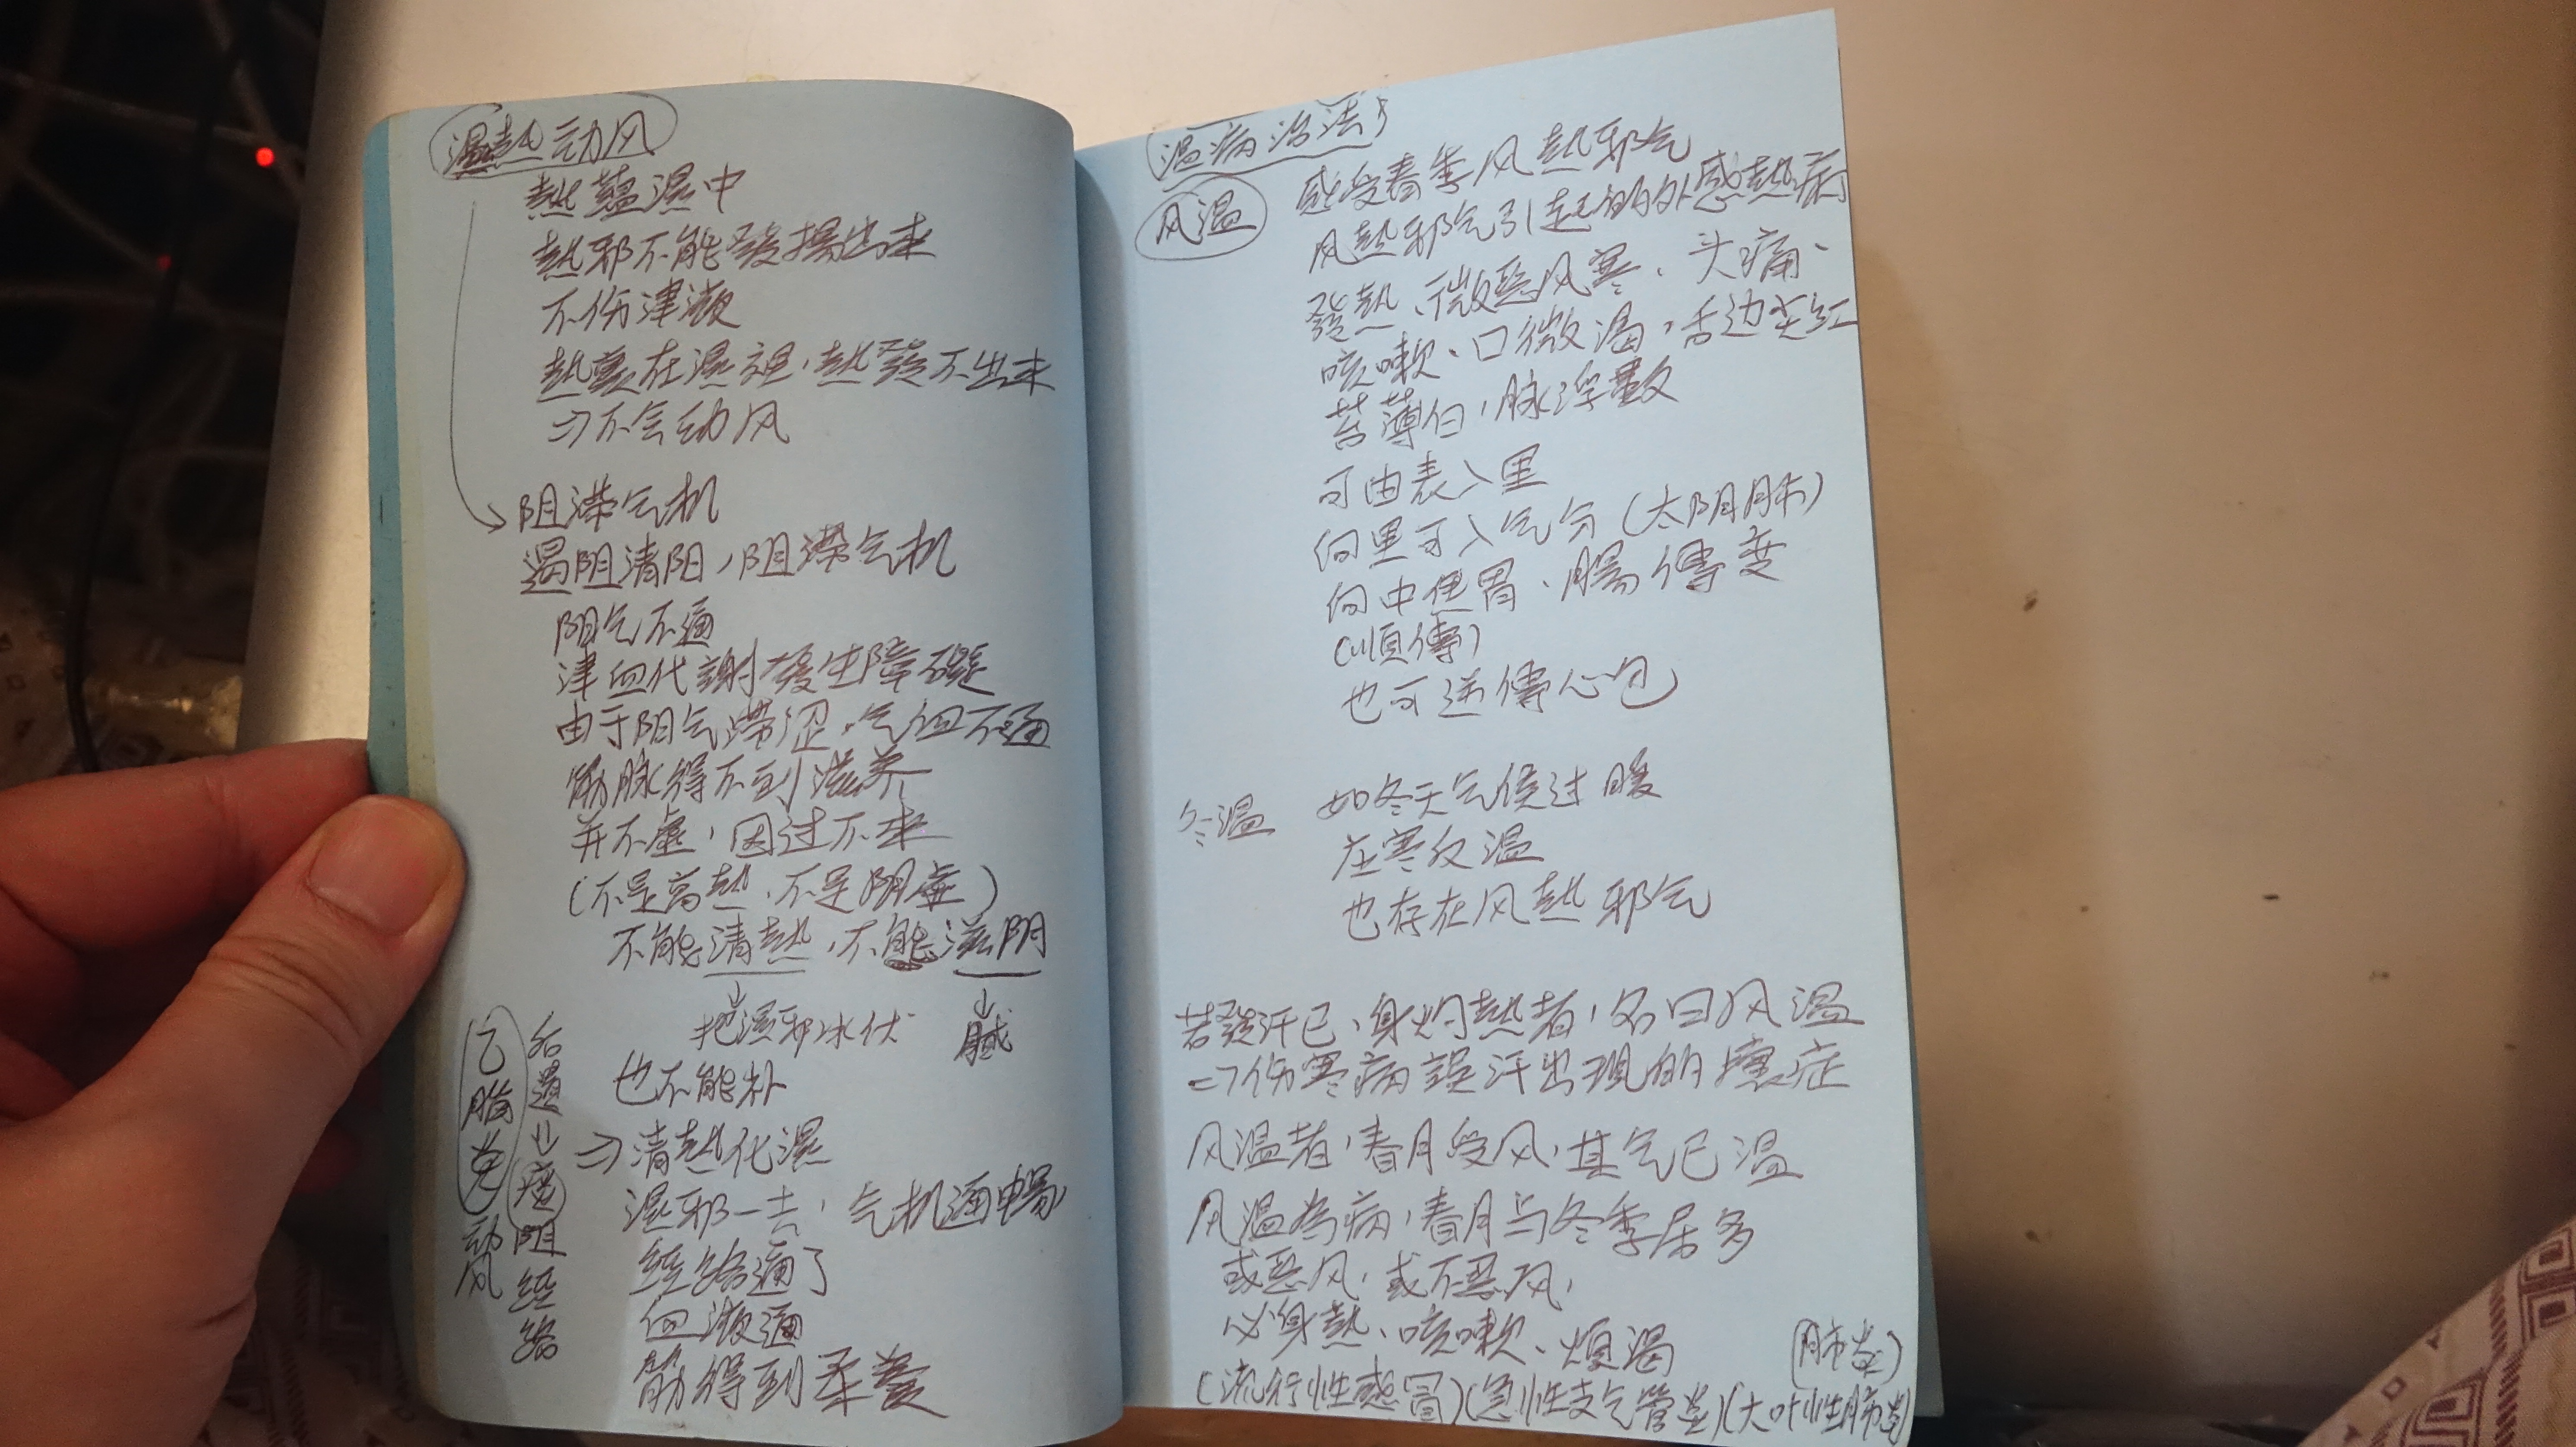 湿热动风
熱蘊濕中
熱邪不能發揚出来
不伤津液
熱蘊在濕裡,熱發不出来
⇒不会动风
阻滞气机
遏阻清阳,阻滞气机
阳气不通
津血代謝發生障礙
由于阳气滞涩,气血不通
筋脉得不到滋养
并不虚,因过不来
(不是高熱、不是阴虚)
不能清熱,不能滋阴
把濕邪冰伏 膩
也不能补
⇒清熱化濕
濕邪一去,气机通暢
经络通了
血液通
筋得到柔養
乙脑炎 动风
后遗症 痰阻经络
温病治法
风温 感受春季风熱邪气
风熱邪气引起的外感熱病
發熱、微恶风寒、头痛、
咳嗽、口微渴,舌边尖红
苔薄白,脉浮數
可由表入里
向里可入气分(太阴肺)
向中焦胃、腸傳变
(順傳)
也可逆傳心包
冬温 如冬天气候过暖
应寒反温
也存在风熱邪气
若發汗已,身灼熱者,名曰风温
⇒伤寒病誤汗出現的壞症
风温者,春月受风,其气已温
风温为病,春月与冬季居多
或恶风,或不恶风,
必身熱、咳嗽、烦渴
(肺炎)
(流行性感冒)(急性支气管炎)(大叶性肺炎)